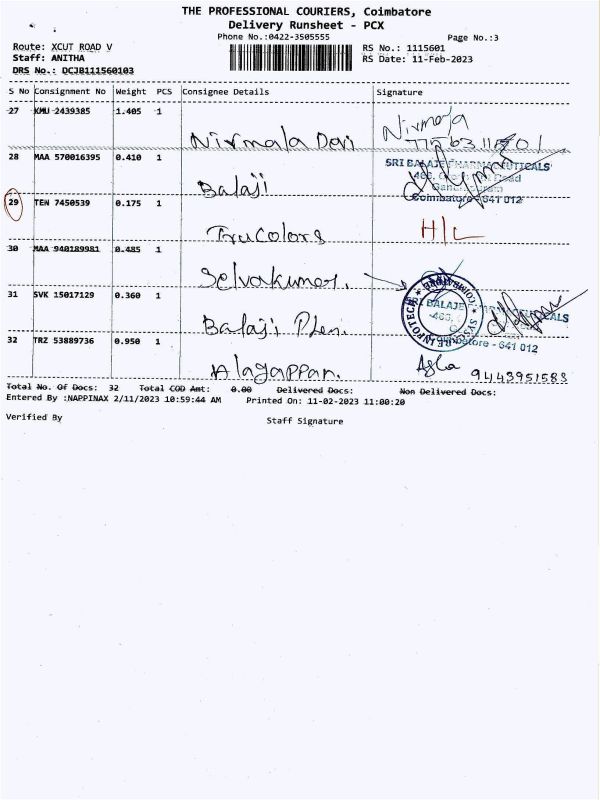 THE PROFESSIONAL COURIERS, Coimbatore
Delivery Runsheet - PCX
Phone No.:0422-3505555
Page No.:3
Route: XCUT ROAD V
RS No.: 1115601
Staff: ANITHA
RS Date: 11-Feb-2023
DRS No.: DCJB111560103
S No Consignment No Weight PCS Consignee Details Signature
27 KMU 2439385 1.405 1
Nirmala Devi Nirmala
28 MAA 570016395 0.410 1
SRI BALAJE PHARMACEUTICALS
Balaji
Coimbatore - 641 012
29 TEN 7450539 0.175 1
TruColors H/L
30 MAA 940189981 0.485 1
Selvakumar.
31 SVK 15017129 0.360 1
SRI BALAJE
Balaji
Coimbatore - 641 012
32 TRZ 53889736 0.950 1
Alagappan. 9443951583
Total No. Of Docs: 32 Total COD Amt: 0.00 Delivered Docs: Non Delivered Docs:
Entered By :NAPPINAX 2/11/2023 10:59:44 AM Printed On: 11-02-2023 11:00:20
Verified By
Staff Signature